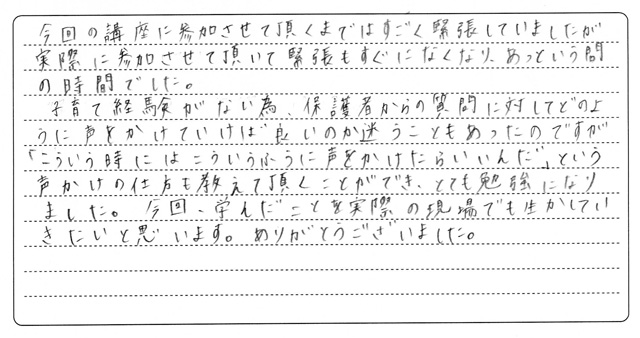 今回の講座に参加させて頂くまではすごく緊張していましたが
実際に参加させて頂いて緊張もすぐになくなり、あっという間
の時間でした。
子育て経験がない為、保護者からの質問に対してどのよ
うに声をかけていけば良いのか迷うこともあったのですが
「こういう時にはこういうふうに声をかけたらいいんだ」という
声かけの仕方も教えて頂くことができ、とても勉強になり
ました。今回、学んだことを実際の現場でも生かしてい
きたいと思います。ありがとうございました。